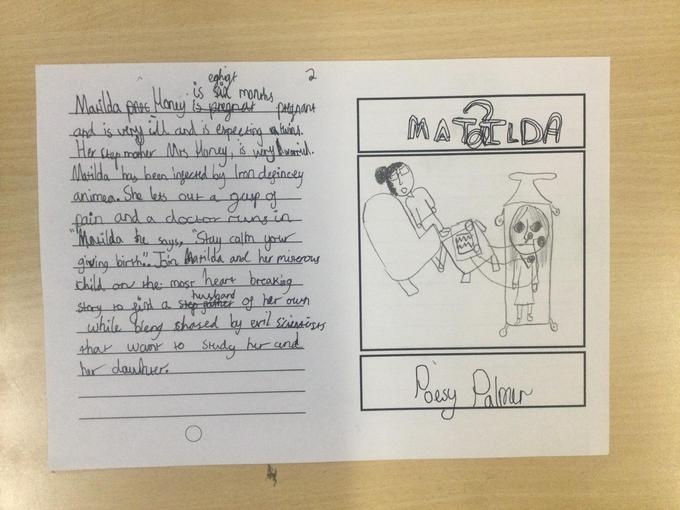 2
eghight
is six months
Matilda Honey is pregnat pregnant
and is very ill and is expecting twins.
Her step mother Mrs Honey, is very worrid.
Matilda has been ingected by Iron defincey
animea. She lets out a gasp of
pain and a doctor runs in
"Matilda he says, "Stay calm your
giving birth". Join Matilda and her miserous
child on the most heart breaking
story to find a step father husband of her own
while bleng shased by evil scientists
that want to study her and
her daughter.
MATILDA
2
Poesy Palmer